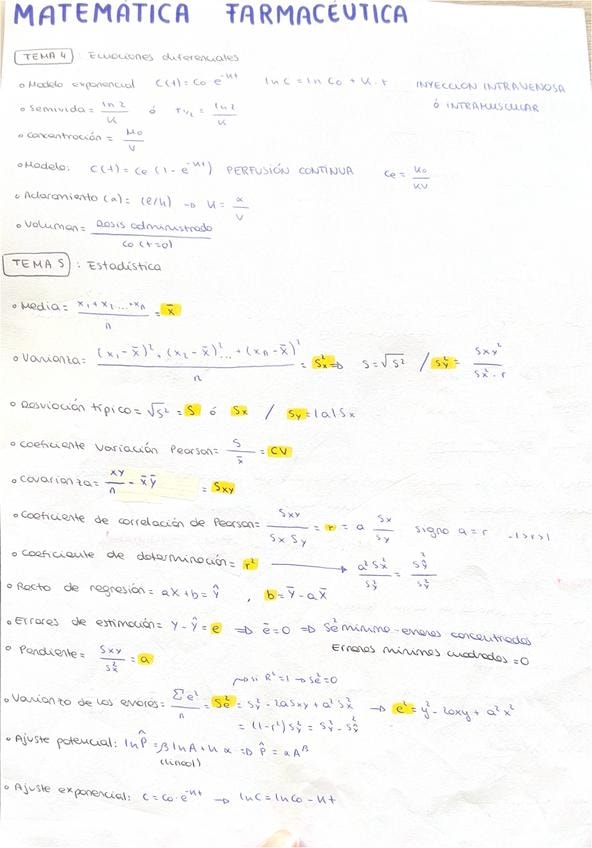 MATEMÁTICA FARMACÉUTICA
TEMA 4 : Ecuaciones diferenciales
• Modelo exponencial C(t) = C₀ e^-Kt ln C = ln C₀ + K · t INYECCIÓN INTRAVENOSA
ó INTRAMUSCULAR
• Semivida = ln 2 / K ó T½ = ln 2 / K
• Concentración = M₀ / V
• Modelo: C(t) = Ce (1 - e^-Kt) PERFUSIÓN CONTINUA Ce = K₀ / KV
• Aclaramiento (a) = (l/h) → K = α / V
• Volumen = Dosis administrada / C₀ (t=0)
TEMA 5 : Estadística
• Media = x₁ + x₂ ... + xₙ / n = x̄
• Varianza = (x₁ - x̄)² + (x₂ - x̄)² ... + (xₙ - x̄)² / n = Sx² ⇒ S = √S² / Sŷ² = Sxy² / Sx² · r
• Desviación típica = √S² = S ó Sx / Sy = |a| · Sx
• Coeficiente variación Pearson = S / x̄ = CV
• Covarianza = xy / n - x̄ȳ = Sxy
• Coeficiente de correlación de Pearson = Sxy / Sx Sy = r = a Sx / Sy signo a = r -1>r>1
• Coeficiente de determinación = r² → a² Sx² / Sy² = Sŷ² / Sy²
• Recta de regresión = aX + b = Ŷ , b = Ȳ - a X̄
• Errores de estimación = Y - Ŷ = e ⇒ ē = 0 ⇒ Se² mínimo - errores concentrados
Errores mínimos cuadrados = 0
• Pendiente = Sxy / Sx² = a
→ si R² = 1 → Se² = 0
• Varianza de los errores = Σe² / n = Se² = Sy² - 2aSxy + a² Sx² → e² = y² - 2axy + a² x²
= (1 - r²) Sy² = Sy² - Sŷ²
• Ajuste potencial: ln P̂ = β ln A + ln α ⇒ P̂ = α A^β
(lineal)
• Ajuste exponencial: C = C₀ · e^-Kt → ln C = ln C₀ - Kt